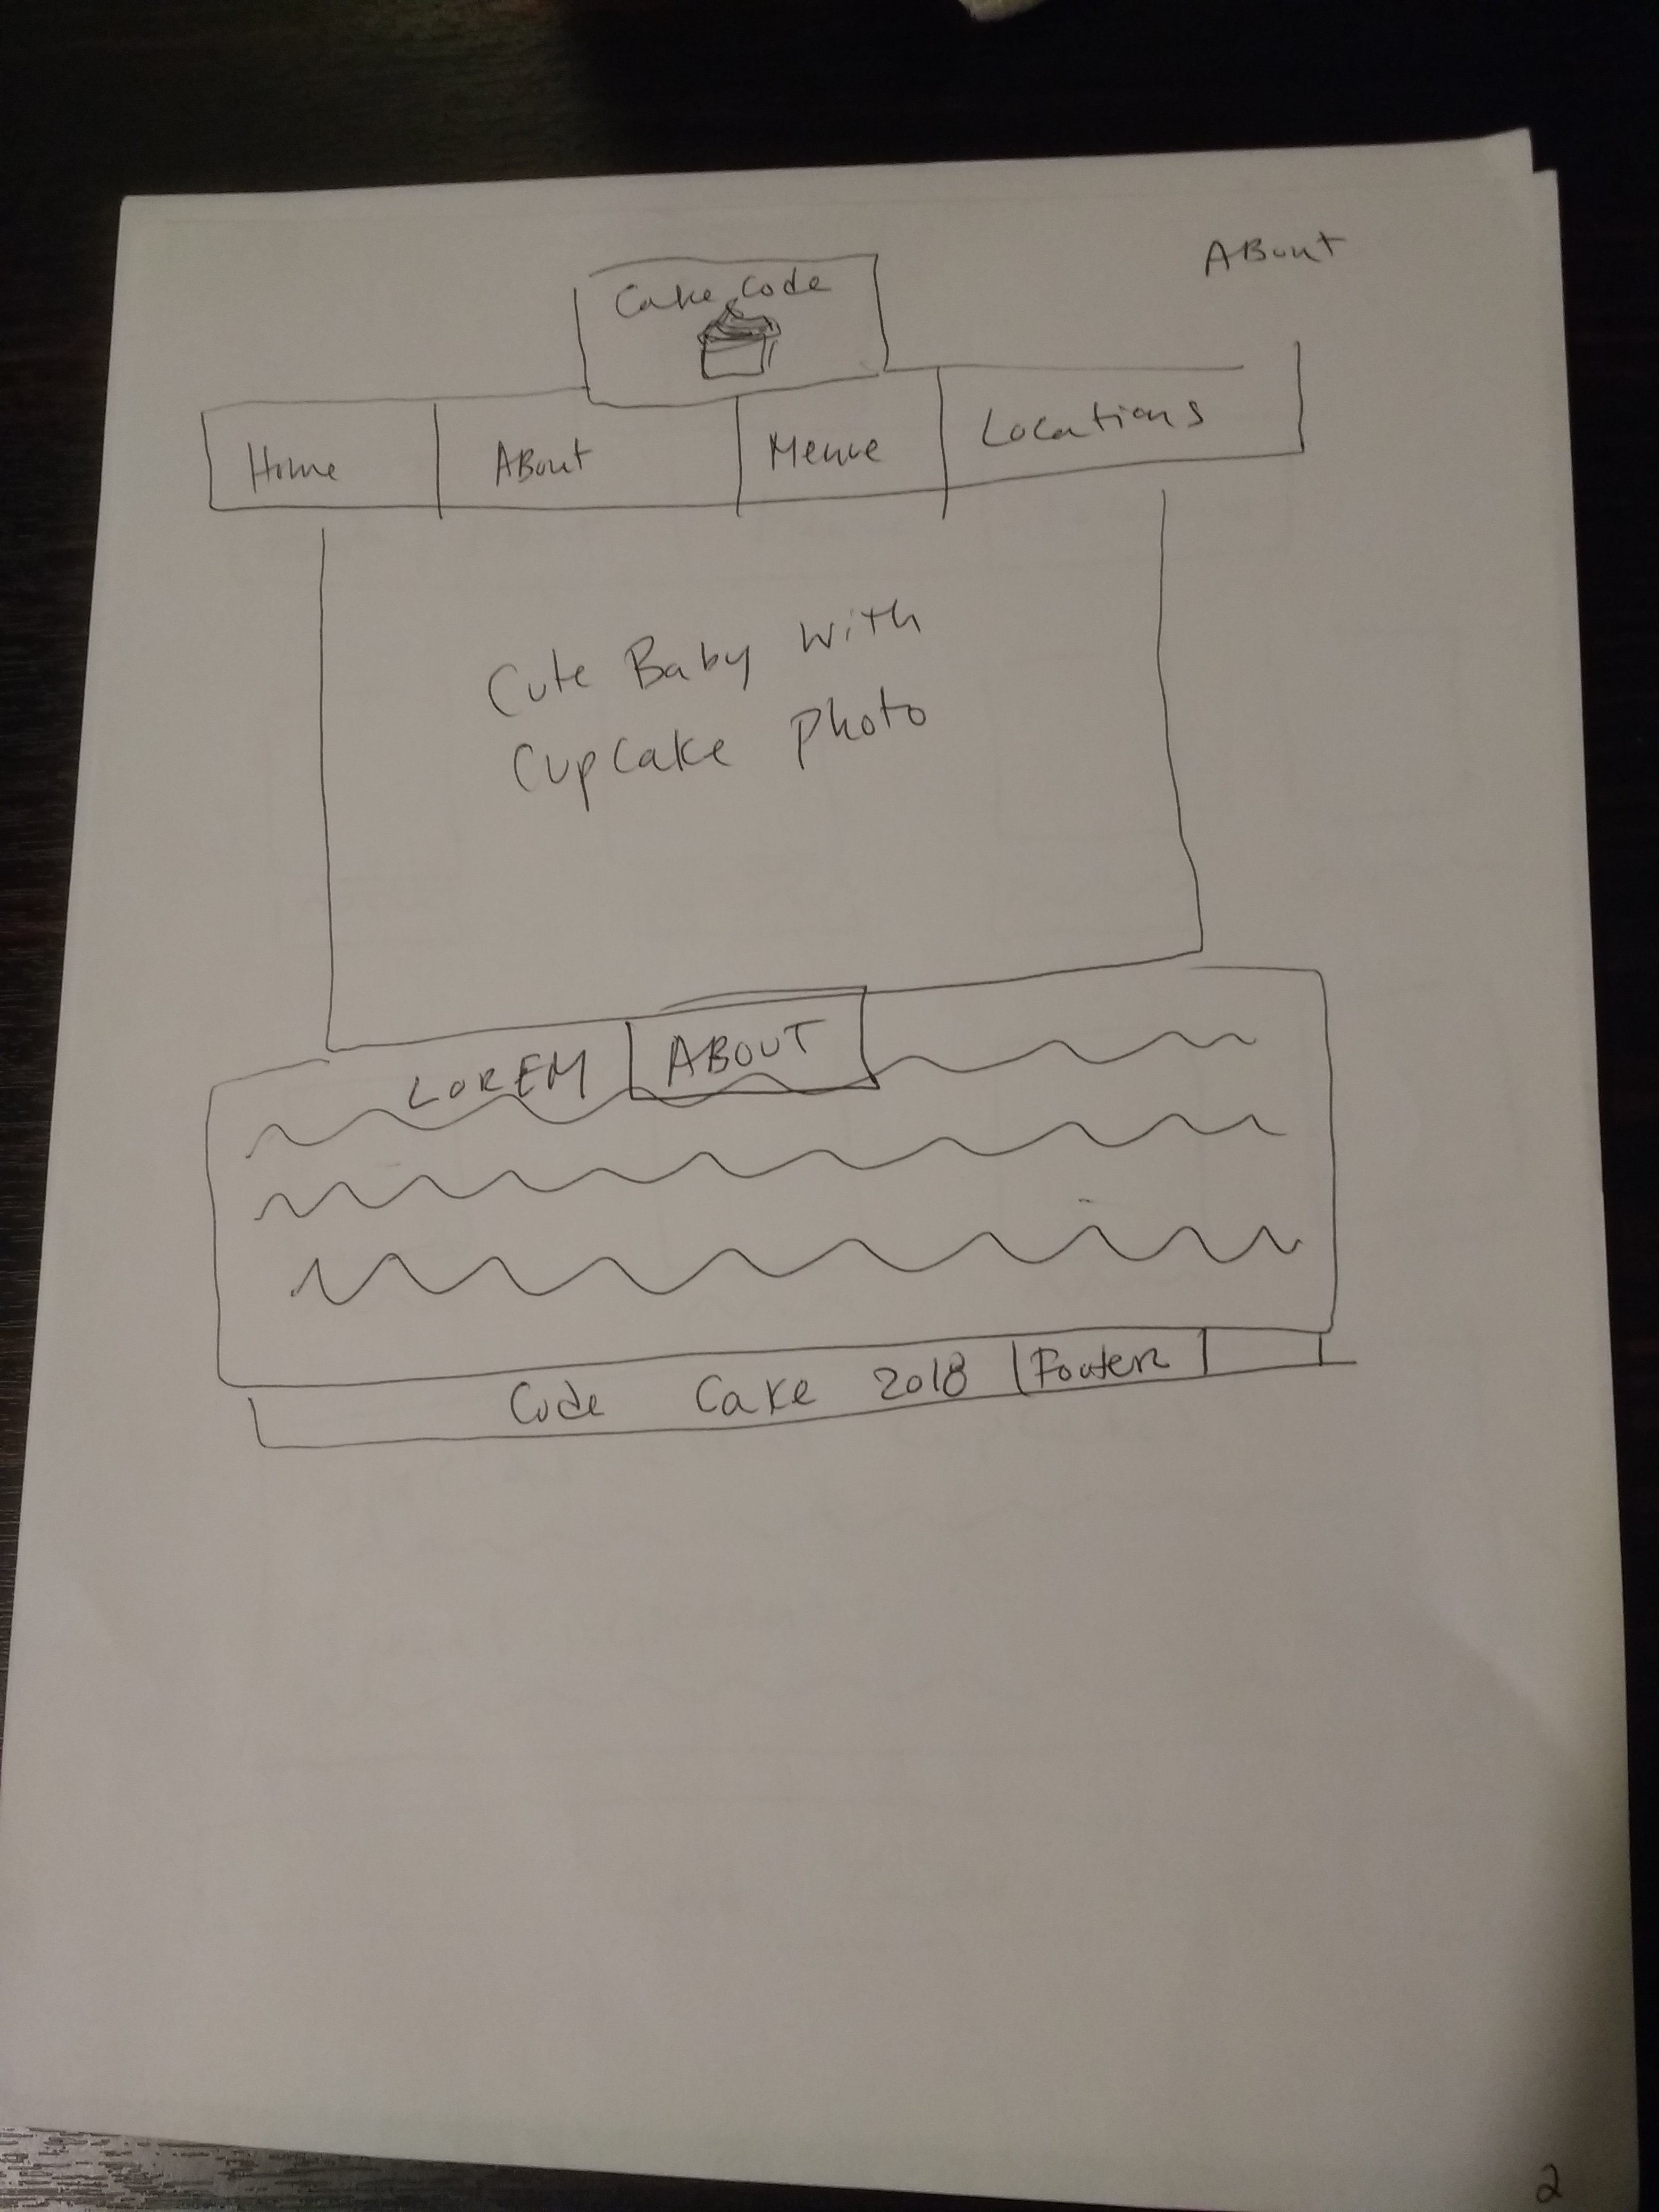 ABout
Cake Code
Home ABout Menue Locations
Cute Baby with
Cupcake Photo
LOREM ABOUT
Code Cake 2018 Footer
2